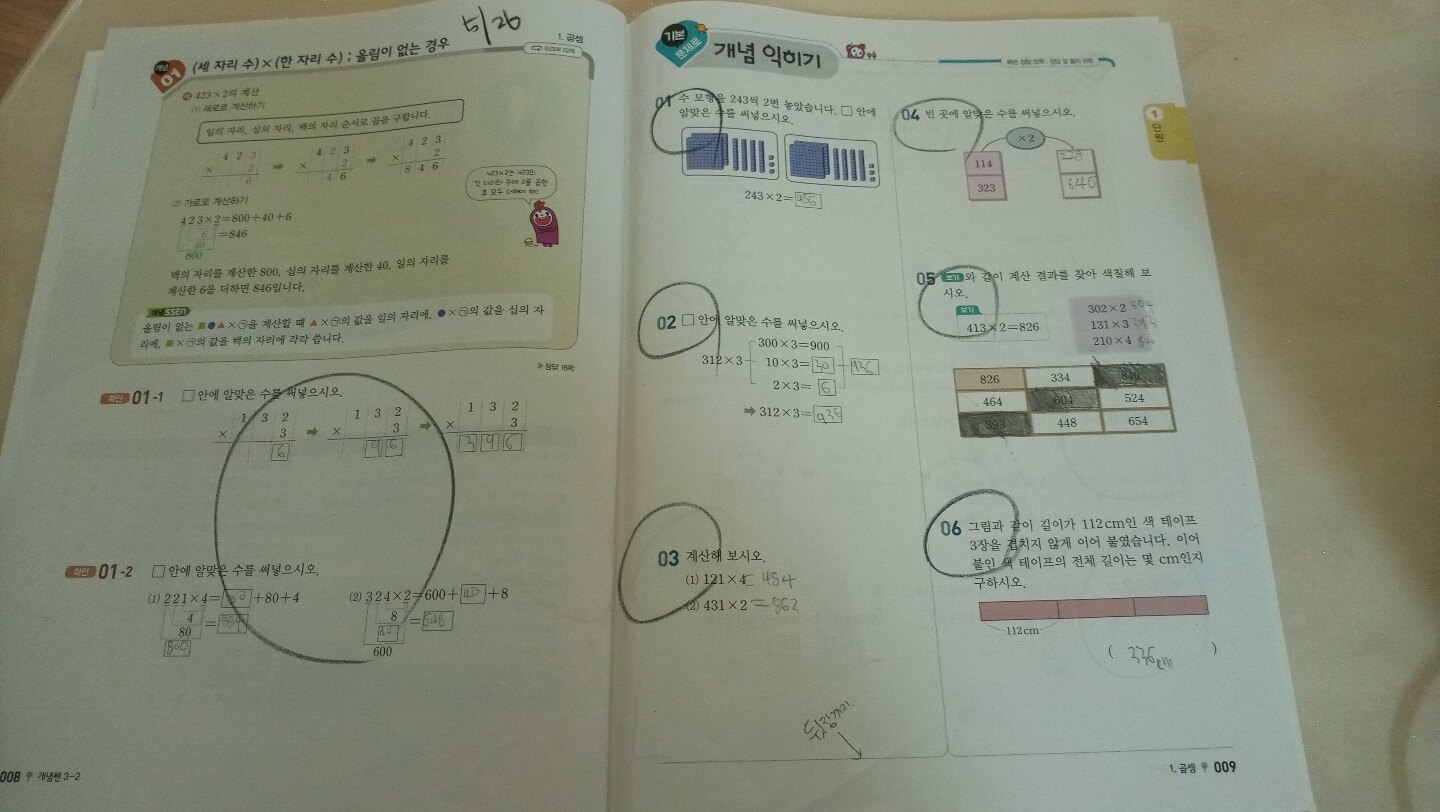 5/26
1. 곱셈
개념 01
(세 자리 수)×(한 자리 수) ; 올림이 없는 경우
예 423×2의 계산
(1) 세로로 계산하기
일의 자리, 십의 자리, 백의 자리 순서로 곱을 구합니다.
4 2 3
× 2
6
4 2 3
× 2
4 6
4 2 3
× 2
8 4 6
423×2는 423의
각 자리의 수에 2를 곱한
후 모두 더해야 해!
(2) 가로로 계산하기
423×2=800+40+6
6 =846
40
800
백의 자리를 계산한 800, 십의 자리를 계산한 40, 일의 자리를
계산한 6을 더하면 846입니다.
개념 SSEN
올림이 없는 ■●▲×㉠을 계산할 때 ▲×㉠의 값을 일의 자리에, ●×㉠의 값을 십의 자
리에, ■×㉠의 값을 백의 자리에 각각 씁니다.
정답 16쪽
확인 01-1 □ 안에 알맞은 수를 써넣으시오.
1 3 2
× 3
6
1 3 2
× 3
9 6
1 3 2
× 3
3 9 6
확인 01-2 □ 안에 알맞은 수를 써넣으시오.
(1) 221×4= +80+4
4 =
80
800
(2) 324×2=600+40+8
8 =648
40
600
008 개념쎈 3-2
기본 문제로 개념 익히기
01 수 모형을 243씩 2번 놓았습니다. □ 안에
알맞은 수를 써넣으시오.
243×2=
02 □ 안에 알맞은 수를 써넣으시오.
300×3=900
312×3 10×3=30 936
2×3=6
➡ 312×3=936
03 계산해 보시오.
(1) 121×4=484
(2) 431×2=862
뒷장까지
04 빈 곳에 알맞은 수를 써넣으시오.
×2
114 228
323 646
05 보기 와 같이 계산 결과를 찾아 색칠해 보
시오.
보기
413×2=826
302×2 604
131×3 393
210×4 840
826 334 840
464 604 524
393 448 654
06 그림과 같이 길이가 112cm인 색 테이프
3장을 겹치지 않게 이어 붙였습니다. 이어
붙인 색 테이프의 전체 길이는 몇 cm인지
구하시오.
112cm
( 336cm )
1 단원
1. 곱셈 009